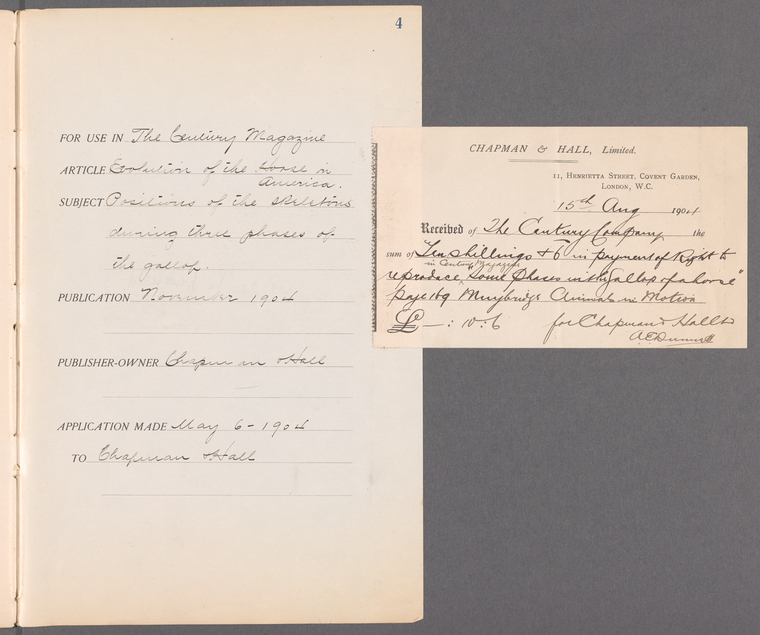 4
FOR USE IN The Century Magazine
ARTICLE Evolution of the Horse in
America.
SUBJECT Positions of the skeletons
during three phases of
the gallop.
PUBLICATION November 1904
PUBLISHER-OWNER Chapman & Hall
APPLICATION MADE May 6 - 1904
TO Chapman & Hall
CHAPMAN & HALL, Limited.
11, HENRIETTA STREET, COVENT GARDEN,
LONDON, W.C.
15th Aug 1904
Received of The Century Company the
sum of Ten shillings & 6 in payment of Right to
in Century Magazine
reproduce "Some Phases in the Gallop of a horse"
page 169 Muybridge Animals in Motion
£ — : 10 : 6 for Chapman & Hall Ld